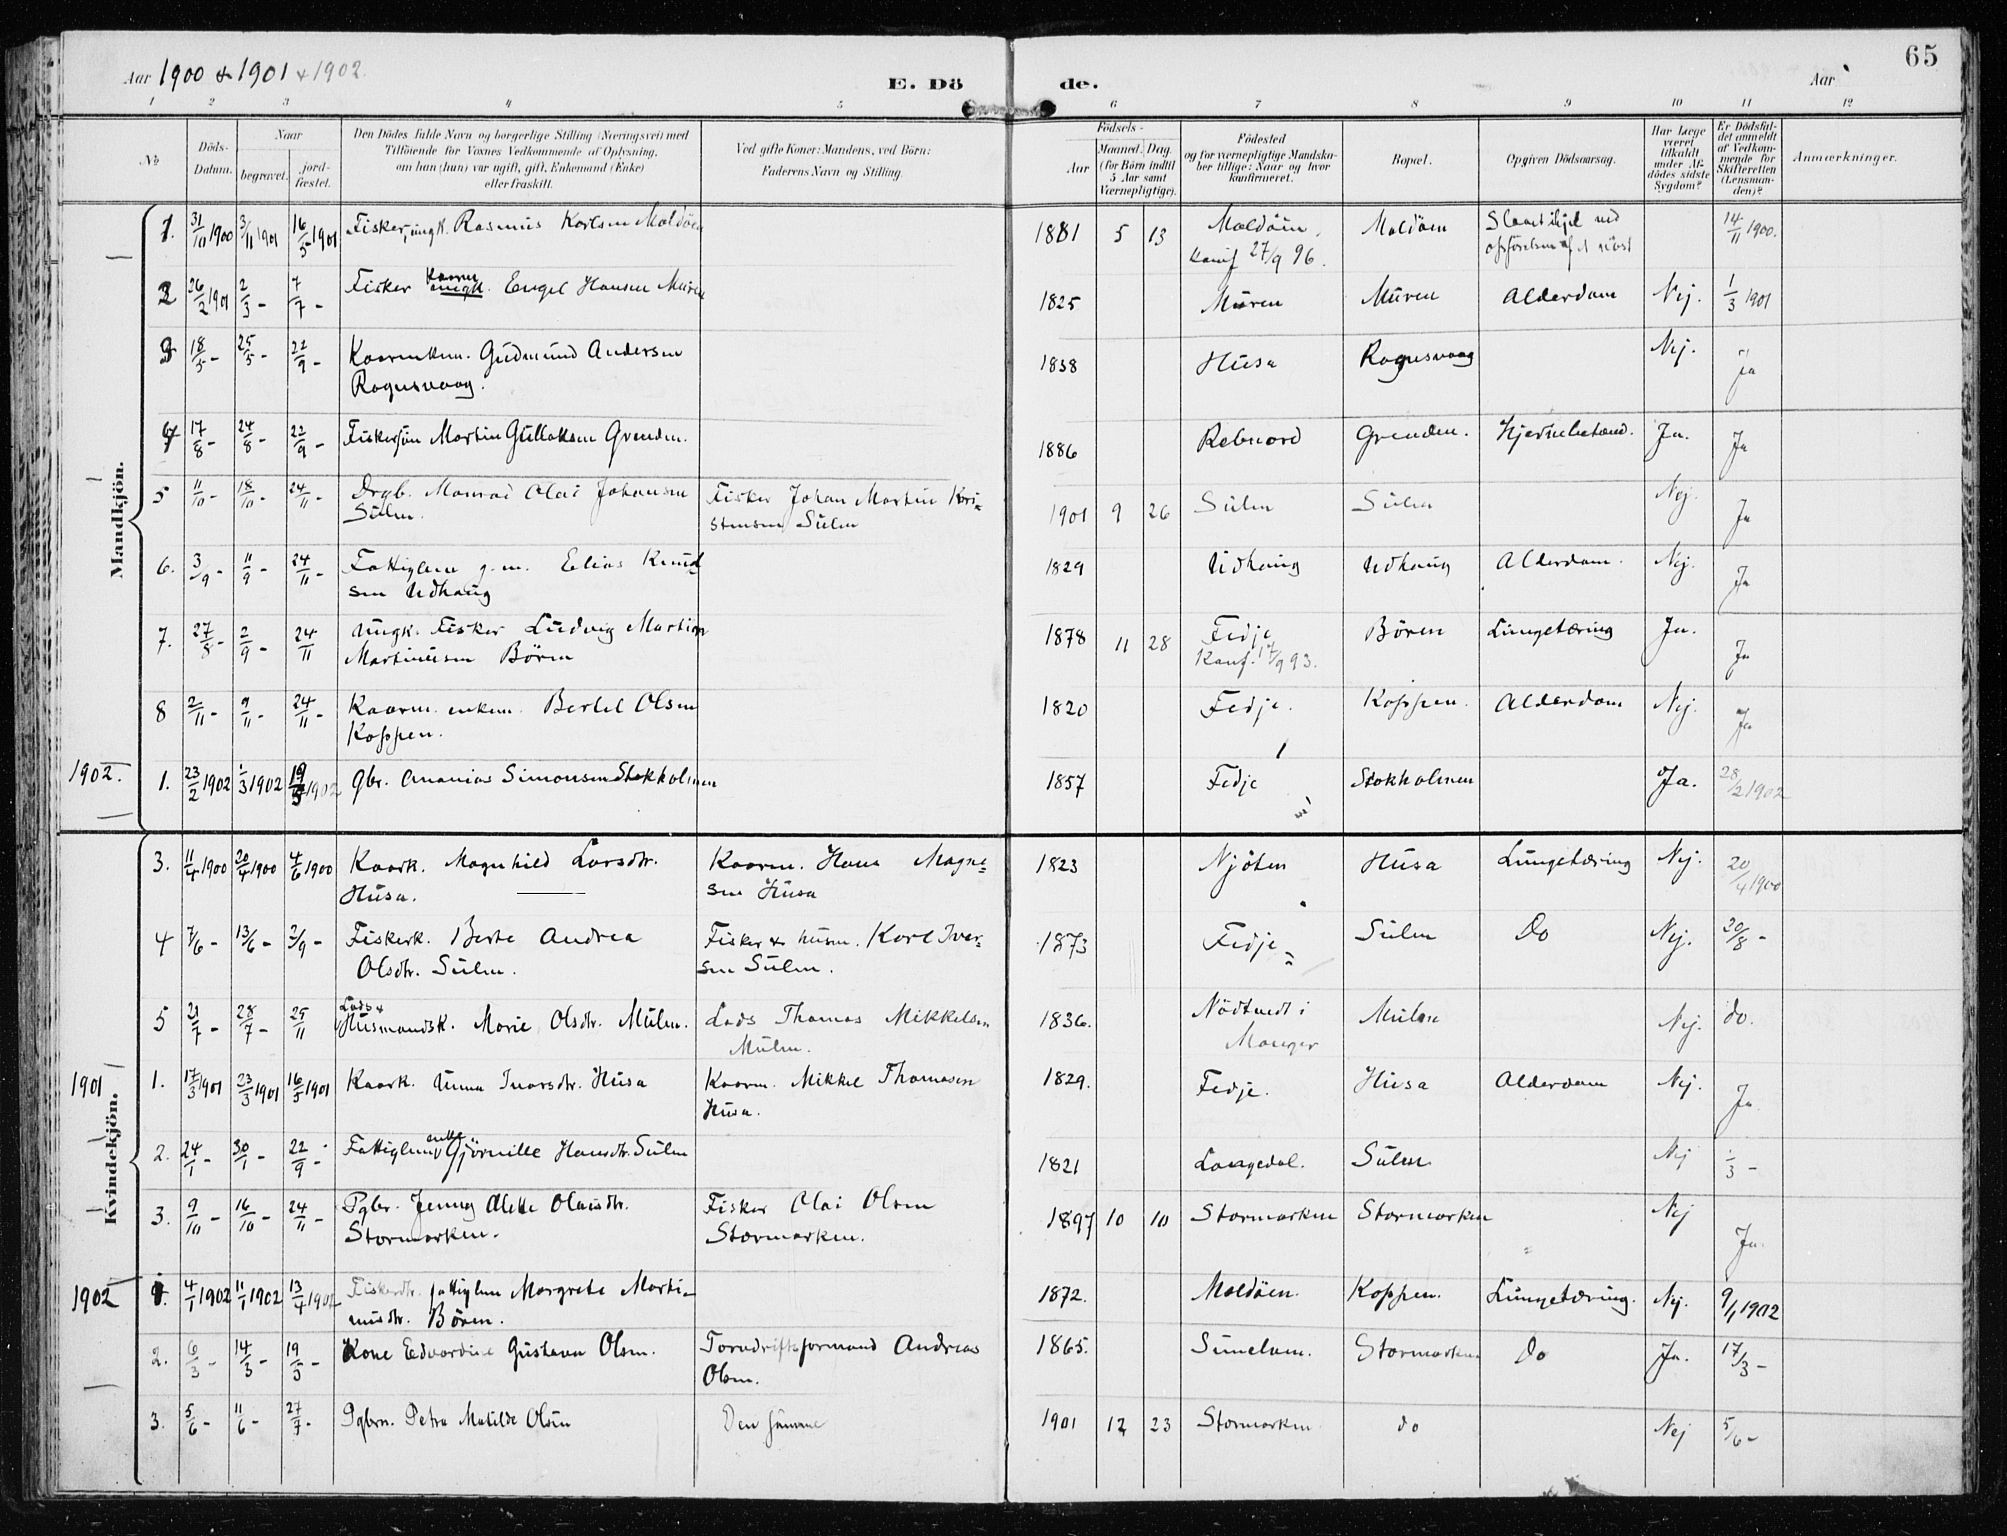 65
Aar 1900 & 1901 & 1902.
E. Dö de.
Aar
1 2 3 4 5 6 7 8 9 10 11 12
No
Döds-Datum.
Naar
begravet.
jord-fæstet.
Den Dödes fulde Navn og borgerlige Stilling (Næringsvei) med
Tilföiende for Voxnes Vedkommende af Oplysning,
om han (hun) var ugift, gift, Enkemand (Enke)
eller fraskilt.
Ved gifte Koner: Mandens, ved Börn:
Faderens Navn og Stilling.
Födsels-
Aar
Maaned. Dag.
(for Börn indtil
5 Aar samt
Værnepligtige).
Födested
og for værnepligtige Mandska-
ber tillige: Naar og hvor
konfirmeret.
Bopæl.
Opgiven Dödsaarsag.
Har Læge
været
tilkaldt
under Af-
dödes sidste
Sygdom?
Er Dödsfal-
det anmeldt
af Vedkom-
mende for
Skifteretten
(Lensman-
den)?
Anmærkninger.
Mandkjön.
1. 31/10 1900 3/11 1901 16/5 1901 Fisker, ungk. Rasmus Karlsen Moldöen 1881 5 13 Moldöen, Konf 27/9 96. Moldöen Slaaet ihjel ved opförelsen af et nöst 14/11 1900.
2 26/2 1901 2/3 - 7/7 - Fisker Engel Hansen Muren 1825 Muren Muren Alderdom Nej. 1/3 1901
3 18/5 - 25/5 - 22/9 - Gudmund Andersen Rognsvaag. 1838 Husa Rognsvaag Nej. Ja
4 17/8 - 24/8 - 22/9 - Fiskersön Martin Gullaksen Grenden. 1886 Rebnord Grenden. Hjernebetænd. Ja. Ja
5 11/10 - 18/10 - 24/11 - Drgb. Monrad Olai Johansen Sulen. Fisker Johan Martin Kristensen Sulen 1901 9 26 Sulen Sulen Nej. Ja
6. 3/9 - 11/9 - 24/11 - Fattiglem g.m. Elias Knudsen Udhaug 1829 Udhaug Udhaug Alderdom. Nej. Ja
7. 27/8 - 2/9 - 24/11 Ungk. Fisker Ludvig Martin Martinusen Bören 1878 11 28 Fedje Konf. 17/9 93. Bören Lungetæring Ja. Ja
8 2/11 - 9/11 - 24/11 - Kaarm. enkem. Bertel Olsen Koppen. 1820 Fedje. Koppen. Alderdom Nej. Ja
1902.
1. 23/2 1902 1/3 1902 19/5 1902 gbr. Ananias Simonsen Stokholmen 1857 Fedje Stokholmen Ja. 28/2 1902
Kvindekjön.
3. 11/4 1900 20/4 1900 4/6 1900 Kaark. Magnhild Larsdtr. Husa. Kaarm. Hans Magnesen Husa 1823 Njöten Husa Lungetæring Nej. 20/4 1900
4 7/6 - 13/6 - 2/9 - Fiskerk. Berte Andrea Olsdtr. Sulen. Fisker & husm. Karl Iversen Sulen. 1873 Fedje Sulen Do Nej. 20/8 -
5 21/7 - 28/7 - 25/11 Lods & Husmandsk. Marie Olsdtr. Mulen. Lods Thomas Mikkelsen Mulen. 1836. Nödtvedt i Manger Mulen Nej. do.
1901
1. 17/3 1901 23/3 1901 16/5 1901 Kaark. Unna Ivarsdtr. Husa Kaarm. Mikkel Thomasen Husa. 1829. Fedje. Husa Alderdom Nej. Ja
2. 24/1 - 30/1 - 22/9 - Fattiglem enke Gjörnille Hansdtr. Sulen 1821 Langedal. Sulen Nej 1/3 -
3. 9/10 - 16/10 - 24/11 - Pgbr. Jenny Alette Olaisdtr. Stormarken. Fisker Olai Olsen Stormarken. 1897 10 10 Stormarken Stormarken Nej Ja.
1902
1. 4/1 1902 11/1 1902 13/4 1902 Fiskerdtr. fattiglem Margrete Martinusdtr. Bören. 1872. Moldöen. Koppen. Lungetæring. Nej. 9/1 1902
2. 6/3 - 14/3 - 19/5 - Kone Edvardine Gustava Olsen. Torvdriftsformand Andreas Olsen. 1865. Stormarken Do Ja. 17/3 -
3. 5/6 - 11/6 - 27/7 - Pgbrn. Petra Matilde Olsen Den samme 1901 12 23 Stormarken do Nej 5/6 -